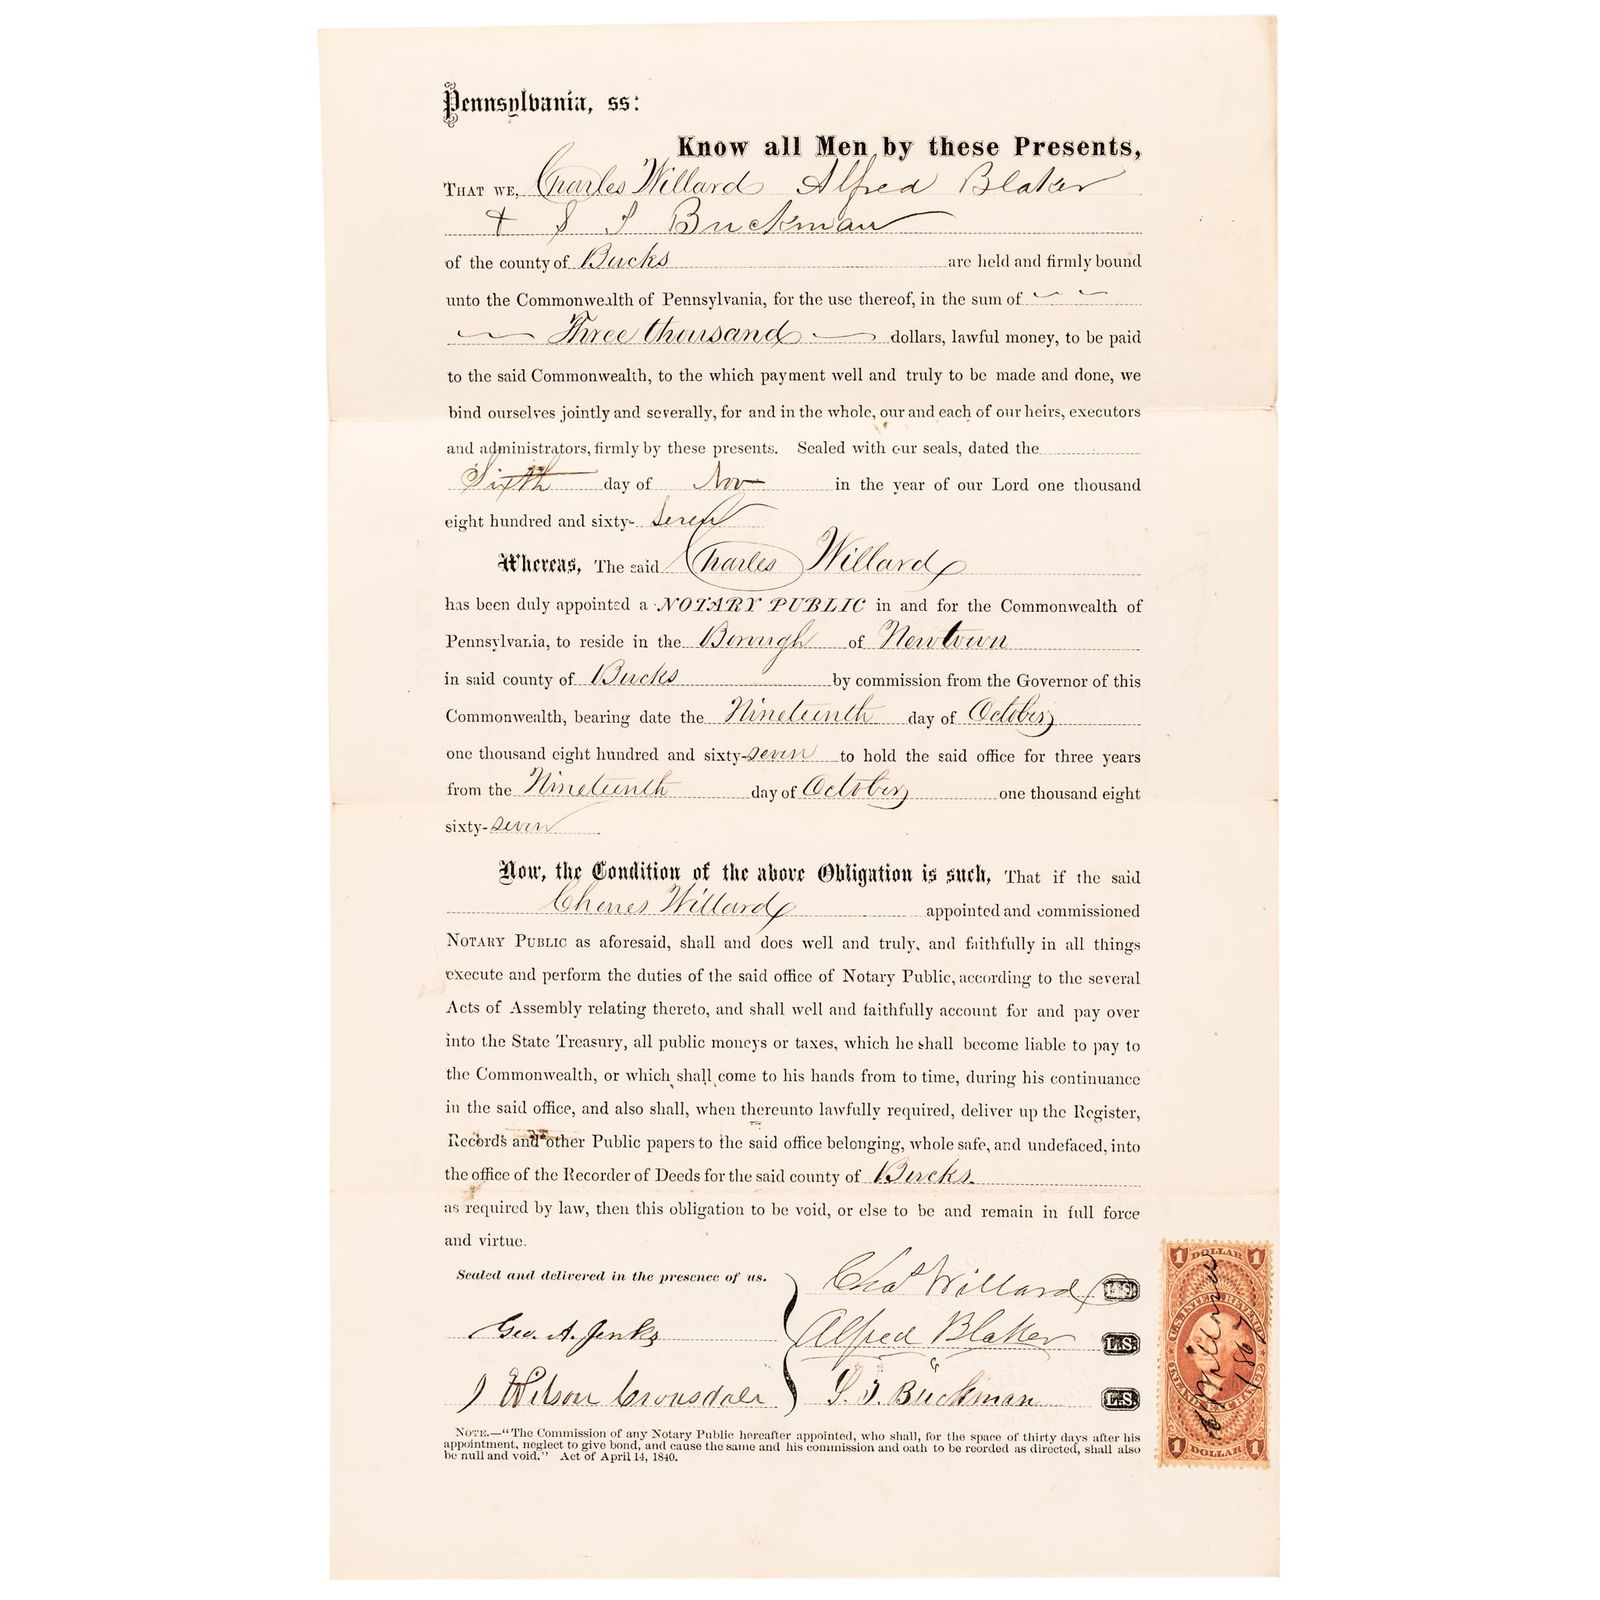 Pennsylvania, ss:
Know all Men by these Presents,
THAT WE, Charles Willard Alfred Blaker
+ S J Buckman
of the county of Bucks are held and firmly bound
unto the Commonwealth of Pennsylvania, for the use thereof, in the sum of
Three thousand dollars, lawful money, to be paid
to the said Commonwealth, to the which payment well and truly to be made and done, we
bind ourselves jointly and severally, for and in the whole, our and each of our heirs, executors
and administrators, firmly by these presents. Sealed with our seals, dated the
Sixth day of Nov in the year of our Lord one thousand
eight hundred and sixty- seven
Whereas, The said Charles Willard
has been duly appointed a NOTARY PUBLIC in and for the Commonwealth of
Pennsylvania, to reside in the Borough of Newtown
in said county of Bucks by commission from the Governor of this
Commonwealth, bearing date the Nineteenth day of October
one thousand eight hundred and sixty-seven to hold the said office for three years
from the Nineteenth day of October one thousand eight
sixty-seven
Now, the Condition of the above Obligation is such, That if the said
Willard appointed and commissioned
NOTARY PUBLIC as aforesaid, shall and does well and truly, and faithfully in all things
execute and perform the duties of the said office of Notary Public, according to the several
Acts of Assembly relating thereto, and shall well and faithfully account for and pay over
into the State Treasury, all public moneys or taxes, which he shall become liable to pay to
the Commonwealth, or which shall come to his hands from to time, during his continuance
in the said office, and also shall, when thereunto lawfully required, deliver up the Register,
Records and other Public papers to the said office belonging, whole safe, and undefaced, into
the office of the Recorder of Deeds for the said county of Bucks.
as required by law, then this obligation to be void, or else to be and remain in full force
and virtue.
Sealed and delivered in the presence of us.
Geo. A. Jenks
J Wilson Cronsdale
Chas Willard L.S.
Alfred Blaker L.S.
S. J. Buckman L.S.
NOTE.—"The Commission of any Notary Public hereafter appointed, who shall, for the space of thirty days after his
appointment, neglect to give bond, and cause the same and his commission and oath to be reorded as directed, shall also
be null and void." Act of April 14, 1840.
1 DOLLAR 1
U.S. INTER. REVENUE
INLAND EXCHANGE
1867
1 DOLLAR 1